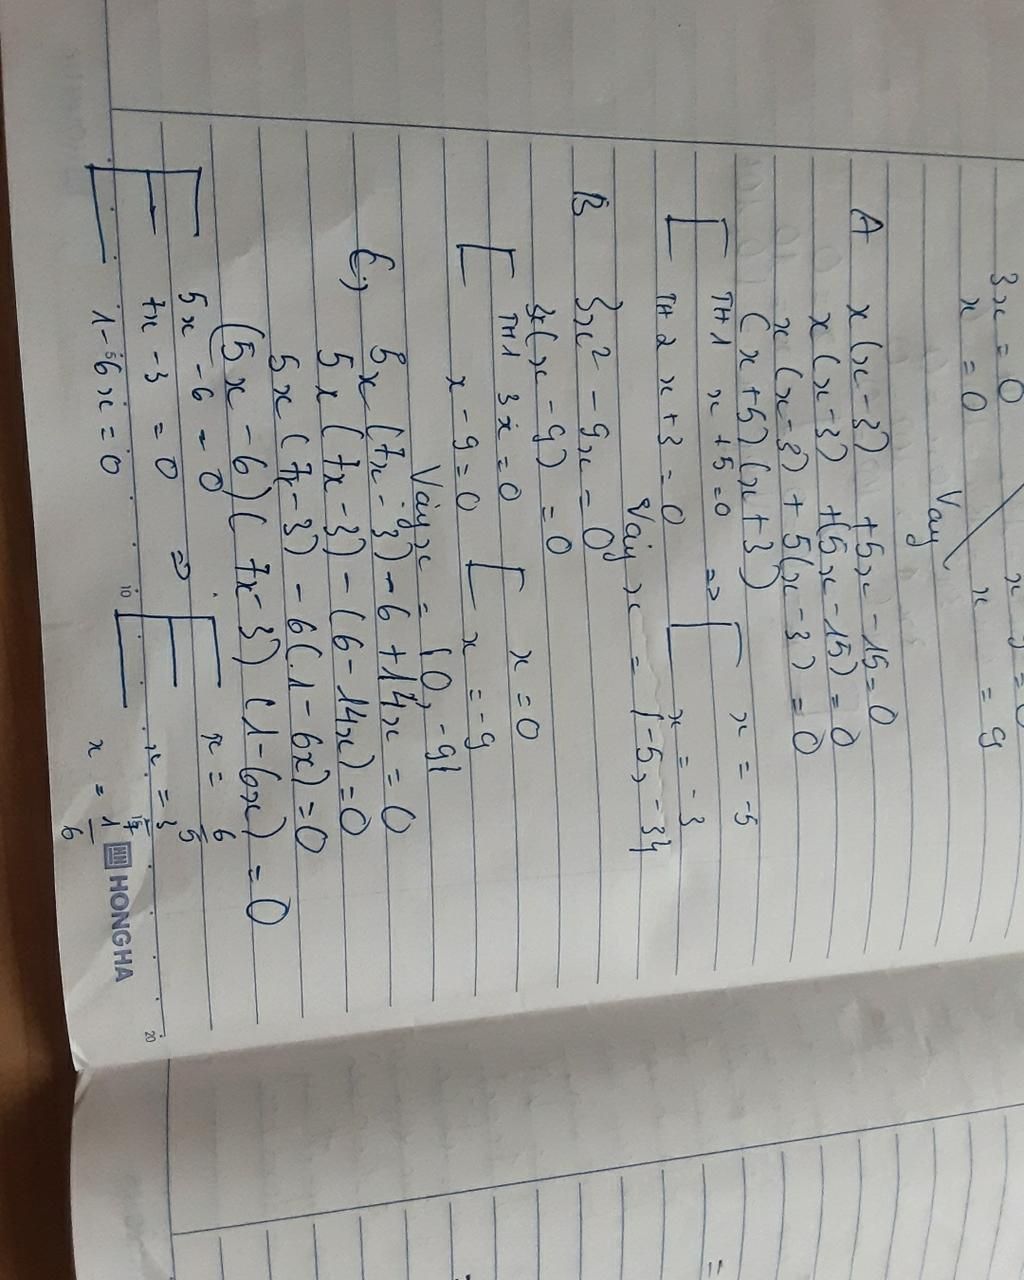 3x = 0
x = 0 x = 9
Vay
A x(x-3) +5x -15=0
x(x-3) +(5x-15)=0
x(x-3) + 5(x-3) = 0
(x+5)(x+3)
TH1 x+5=0 => x = -5
TH 2 x+3=0 x = -3
Vậy x = {-5, -3}
B 3x² - 9x = 0
3x(x-9) = 0
TH1 3x=0 x=0
x-9=0 x=-9
Vậy x = {0, -9}
5x(7x-3) - 6 + 14x = 0
5x(7x-3) - (6-14x)=0
5x(7x-3) - 6(1-6x)=0
(5x-6)(7x-3)(1-6x)=0
5x-6=0 x = 6/5
7x-3=0 => x = 3/7
1-6x=0 x = 1/6
10
20
HONG HA